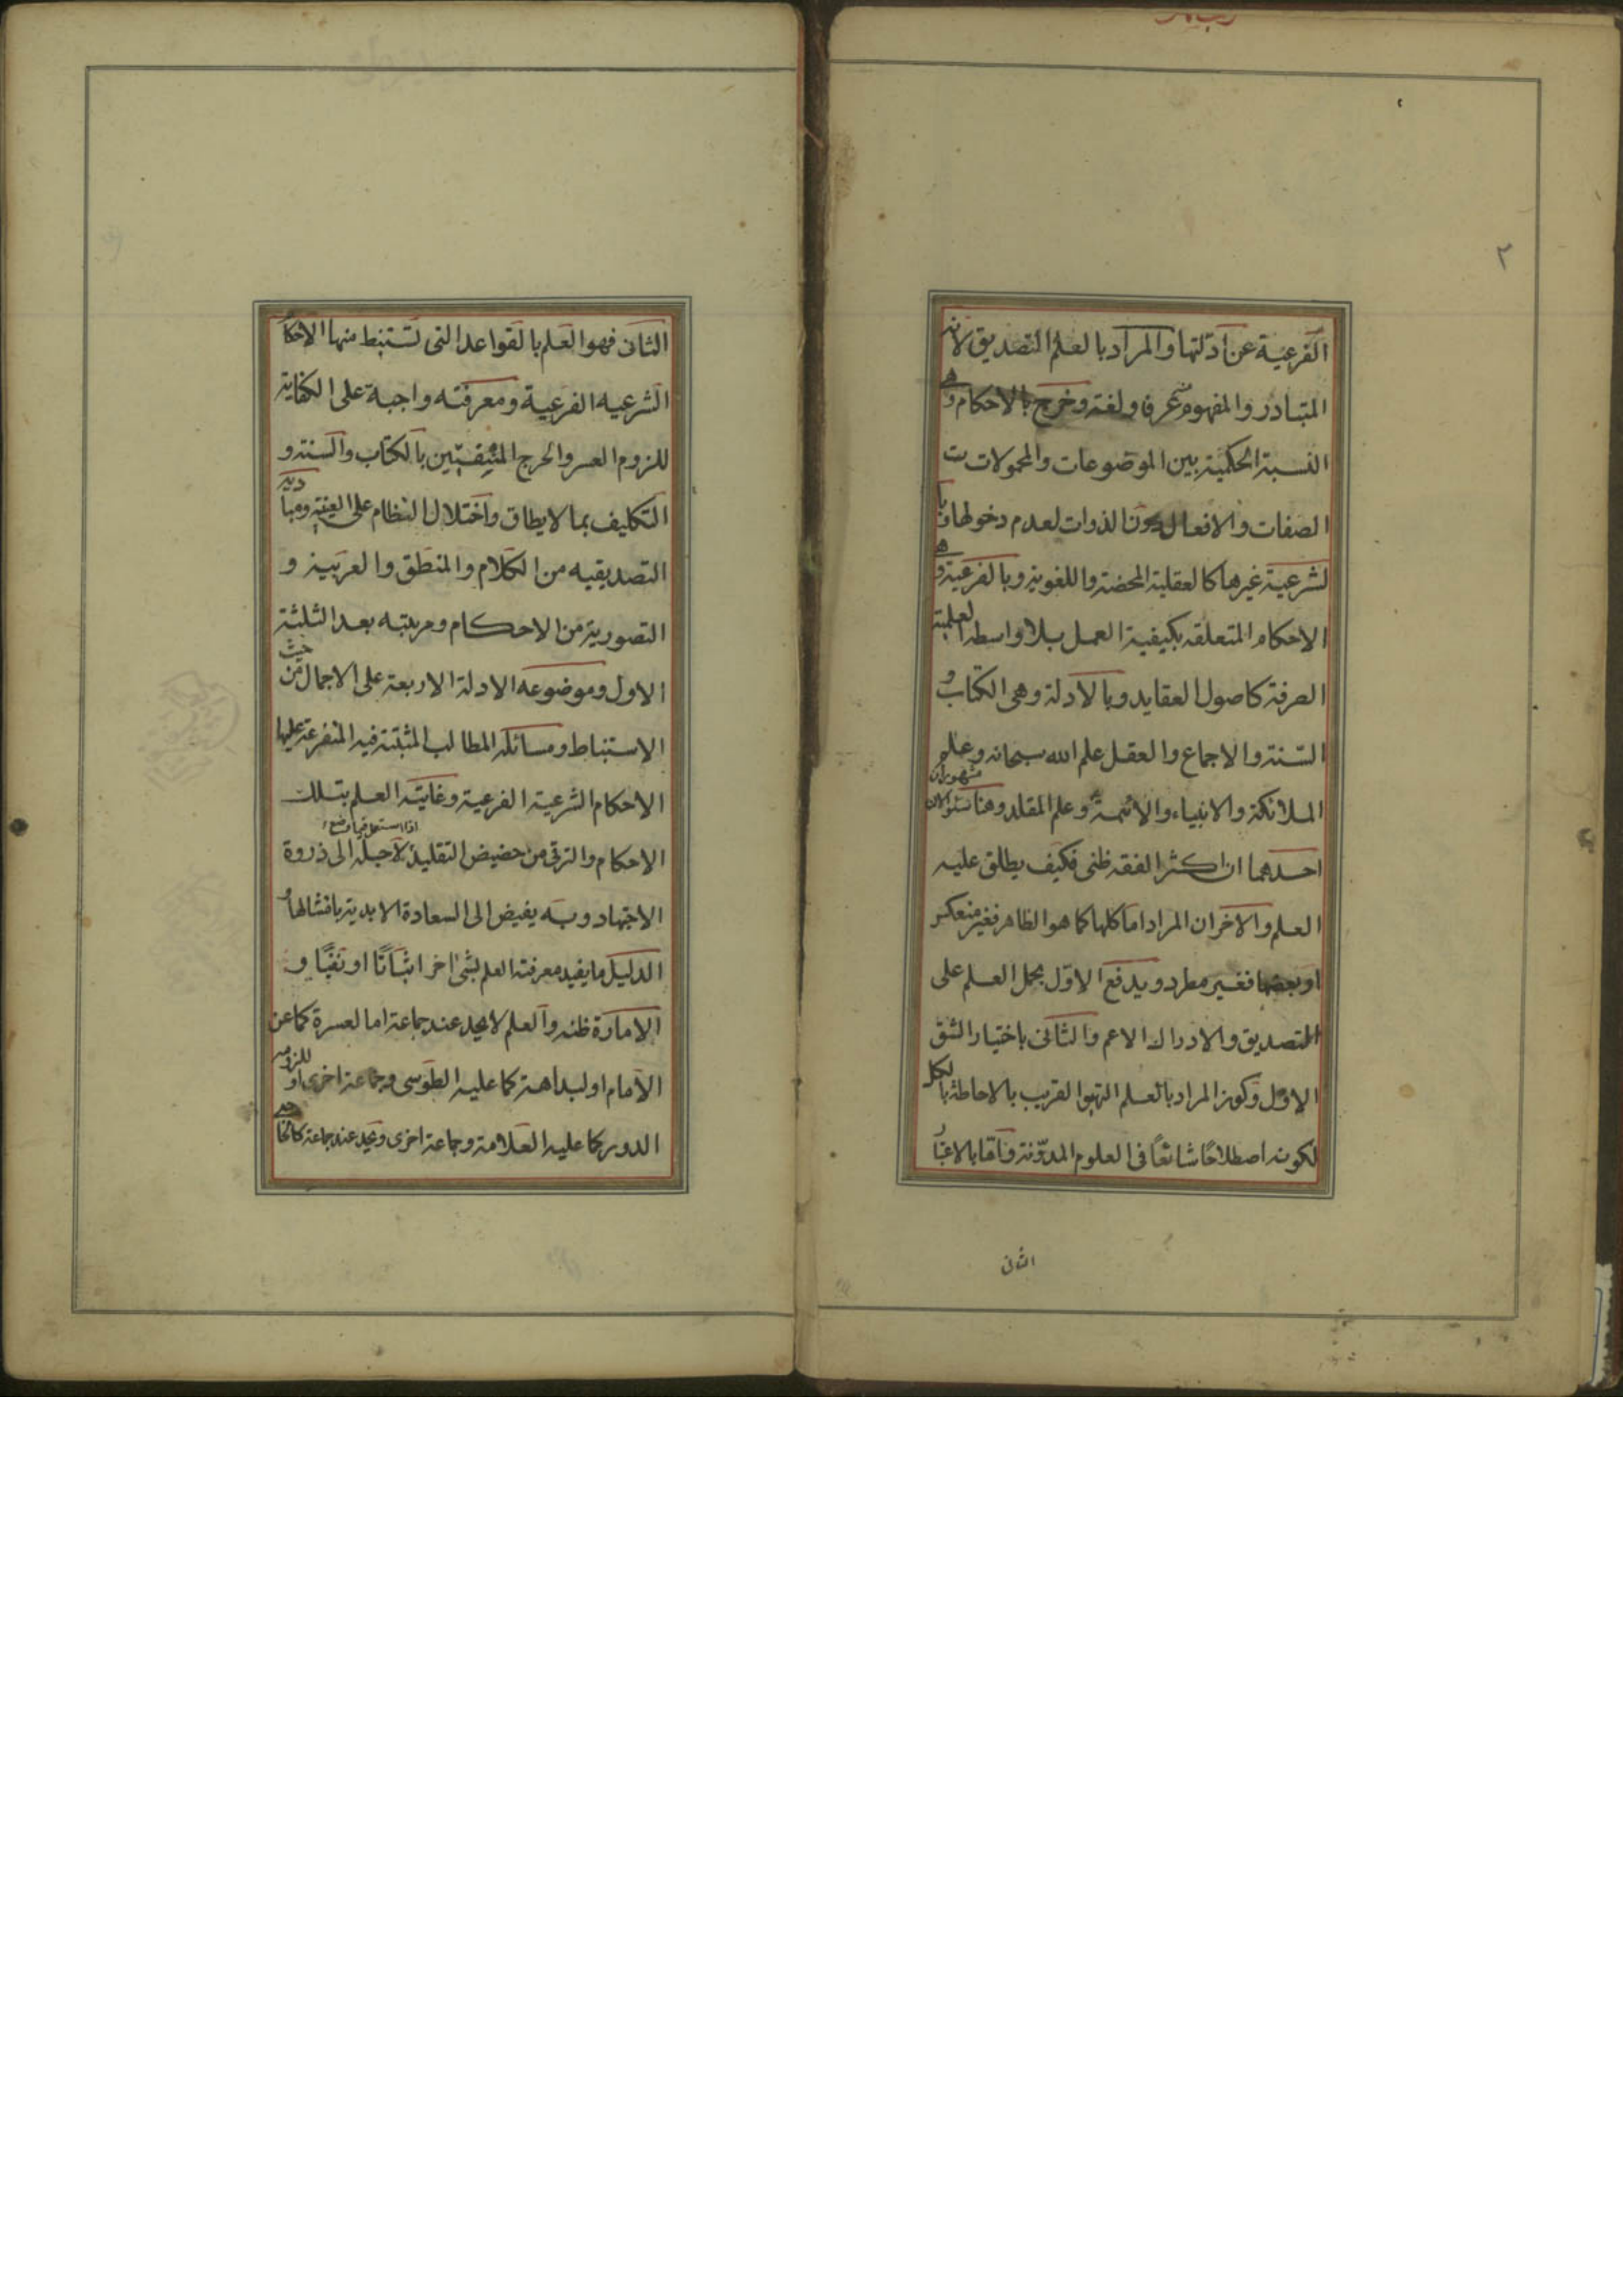 ٢
الفرعية عن ادلتها والمراد بالعلم التصديق لانه
المتبادر والمفهوم عرفا ولغة وخرج بالاحكام وهى
النسبة الحكمية بين الموضوعات والمحمولات
الصفات والافعال دون الذوات لعدم دخولها وبا
لشرعية غيرها كالعقلية المحضة واللغوية وبالفرعية وهى
الاحكام المتعلقة بكيفية العمل بلا واسطة العلمية
الصرفة كاصول العقايد وبالادلة وهى الكتاب و
السنة والاجماع والعقل علم الله سبحانه وعلم
الملائكة والانبياء والائمة وعلم المقلد وهنا سئوالان مشهوران
احدهما ان اكثر الفقه ظنى فكيف يطلق عليه
العلم والاخر ان المراد اما كلها كما هو الظاهر فغير منعكس
او بعضها فغير مطرد ويدفع الاول بحمل العلم على
التصديق والادراك الاعم والثانى باختيار الشق
الاول وكون المراد بالعلم التهيؤ القريب بالاحاطة بالكل
لكونه اصطلاحًا شائعًا فى العلوم المدونة واما بالاعتبار
الثانى
الثانى فهو العلم بالقواعد التى تستنبط منها الاحكا
الشرعيه الفرعية ومعرفته واجبة على الكفاية
للزوم العسر والحرج المنفيين بالكتاب والسنة و
التكليف بما لا يطاق واختلال النظام على العينية ومباديه
التصديقيه من الكلام والمنطق والعربية و
التصورية من الاحكام ومرتبته بعد الثلثة
الاول وموضوعه الادلة الاربعة على الاجمال من حيث
الاستنباط ومسائله المطالب المثبتة فيه المتفرعة عليها
الاحكام الشرعية الفرعية وغايته العلم بتلك
الاحكام والترقى من حضيض التقليد لاجله الى ذروة
الاجتهاد وبه يفيض الى السعادة الابدية
الدليل ما يفيد معرفته العلم بشئ اخر اثباتًا او نفيًا و
الامارة ظنه والعلم لا يحد عند جماعة اما لعسرة كما عن
الامام او لبداهته كما عليه الطوسى وجماعة اخرى او للزوم
الدور كما عليه العلامة وجماعة اخرى ويحد عند جماعة